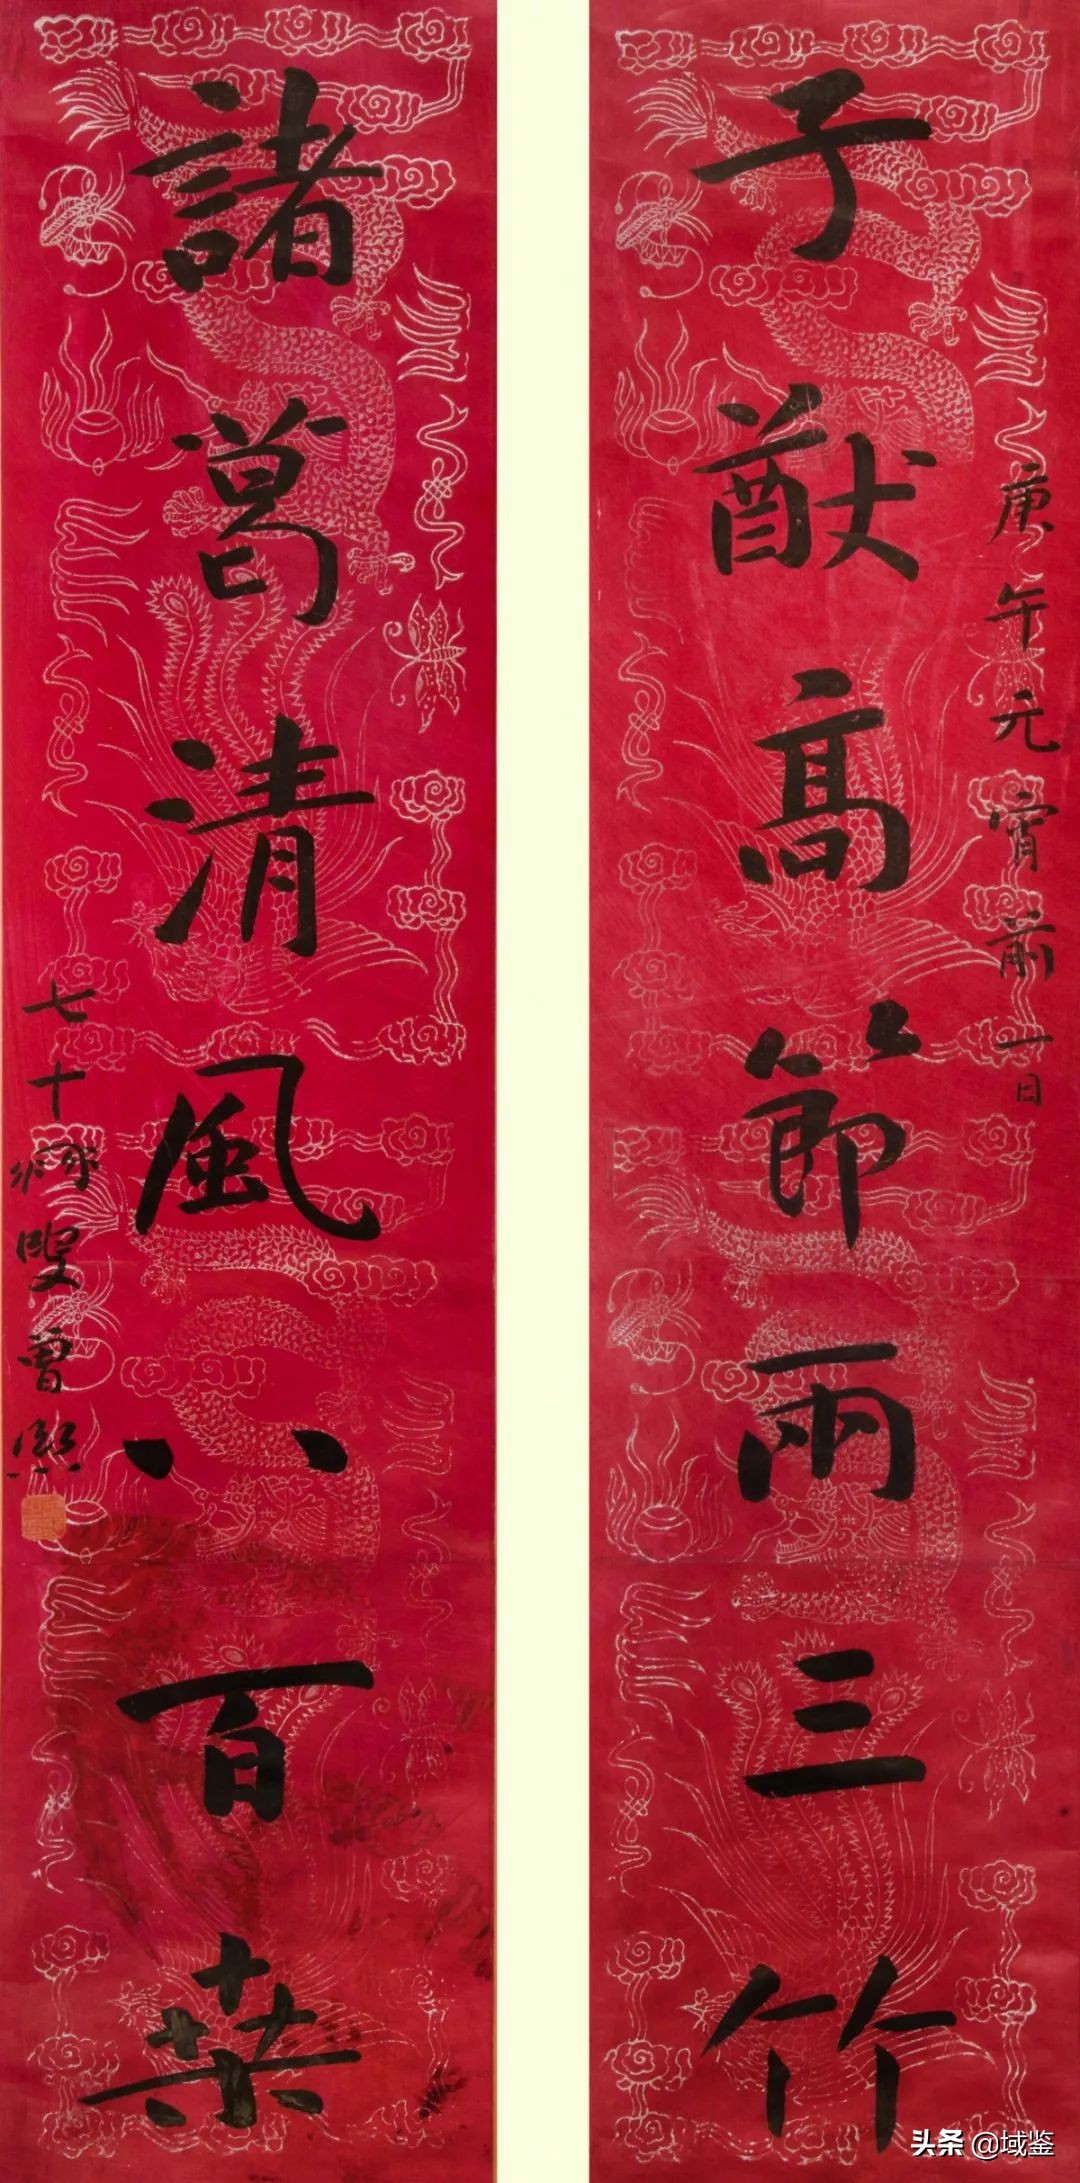 庚午元宵前一日
子猷高節兩三竹
諸葛清風八百桑
七十叟曾熙
头条 @域鉴